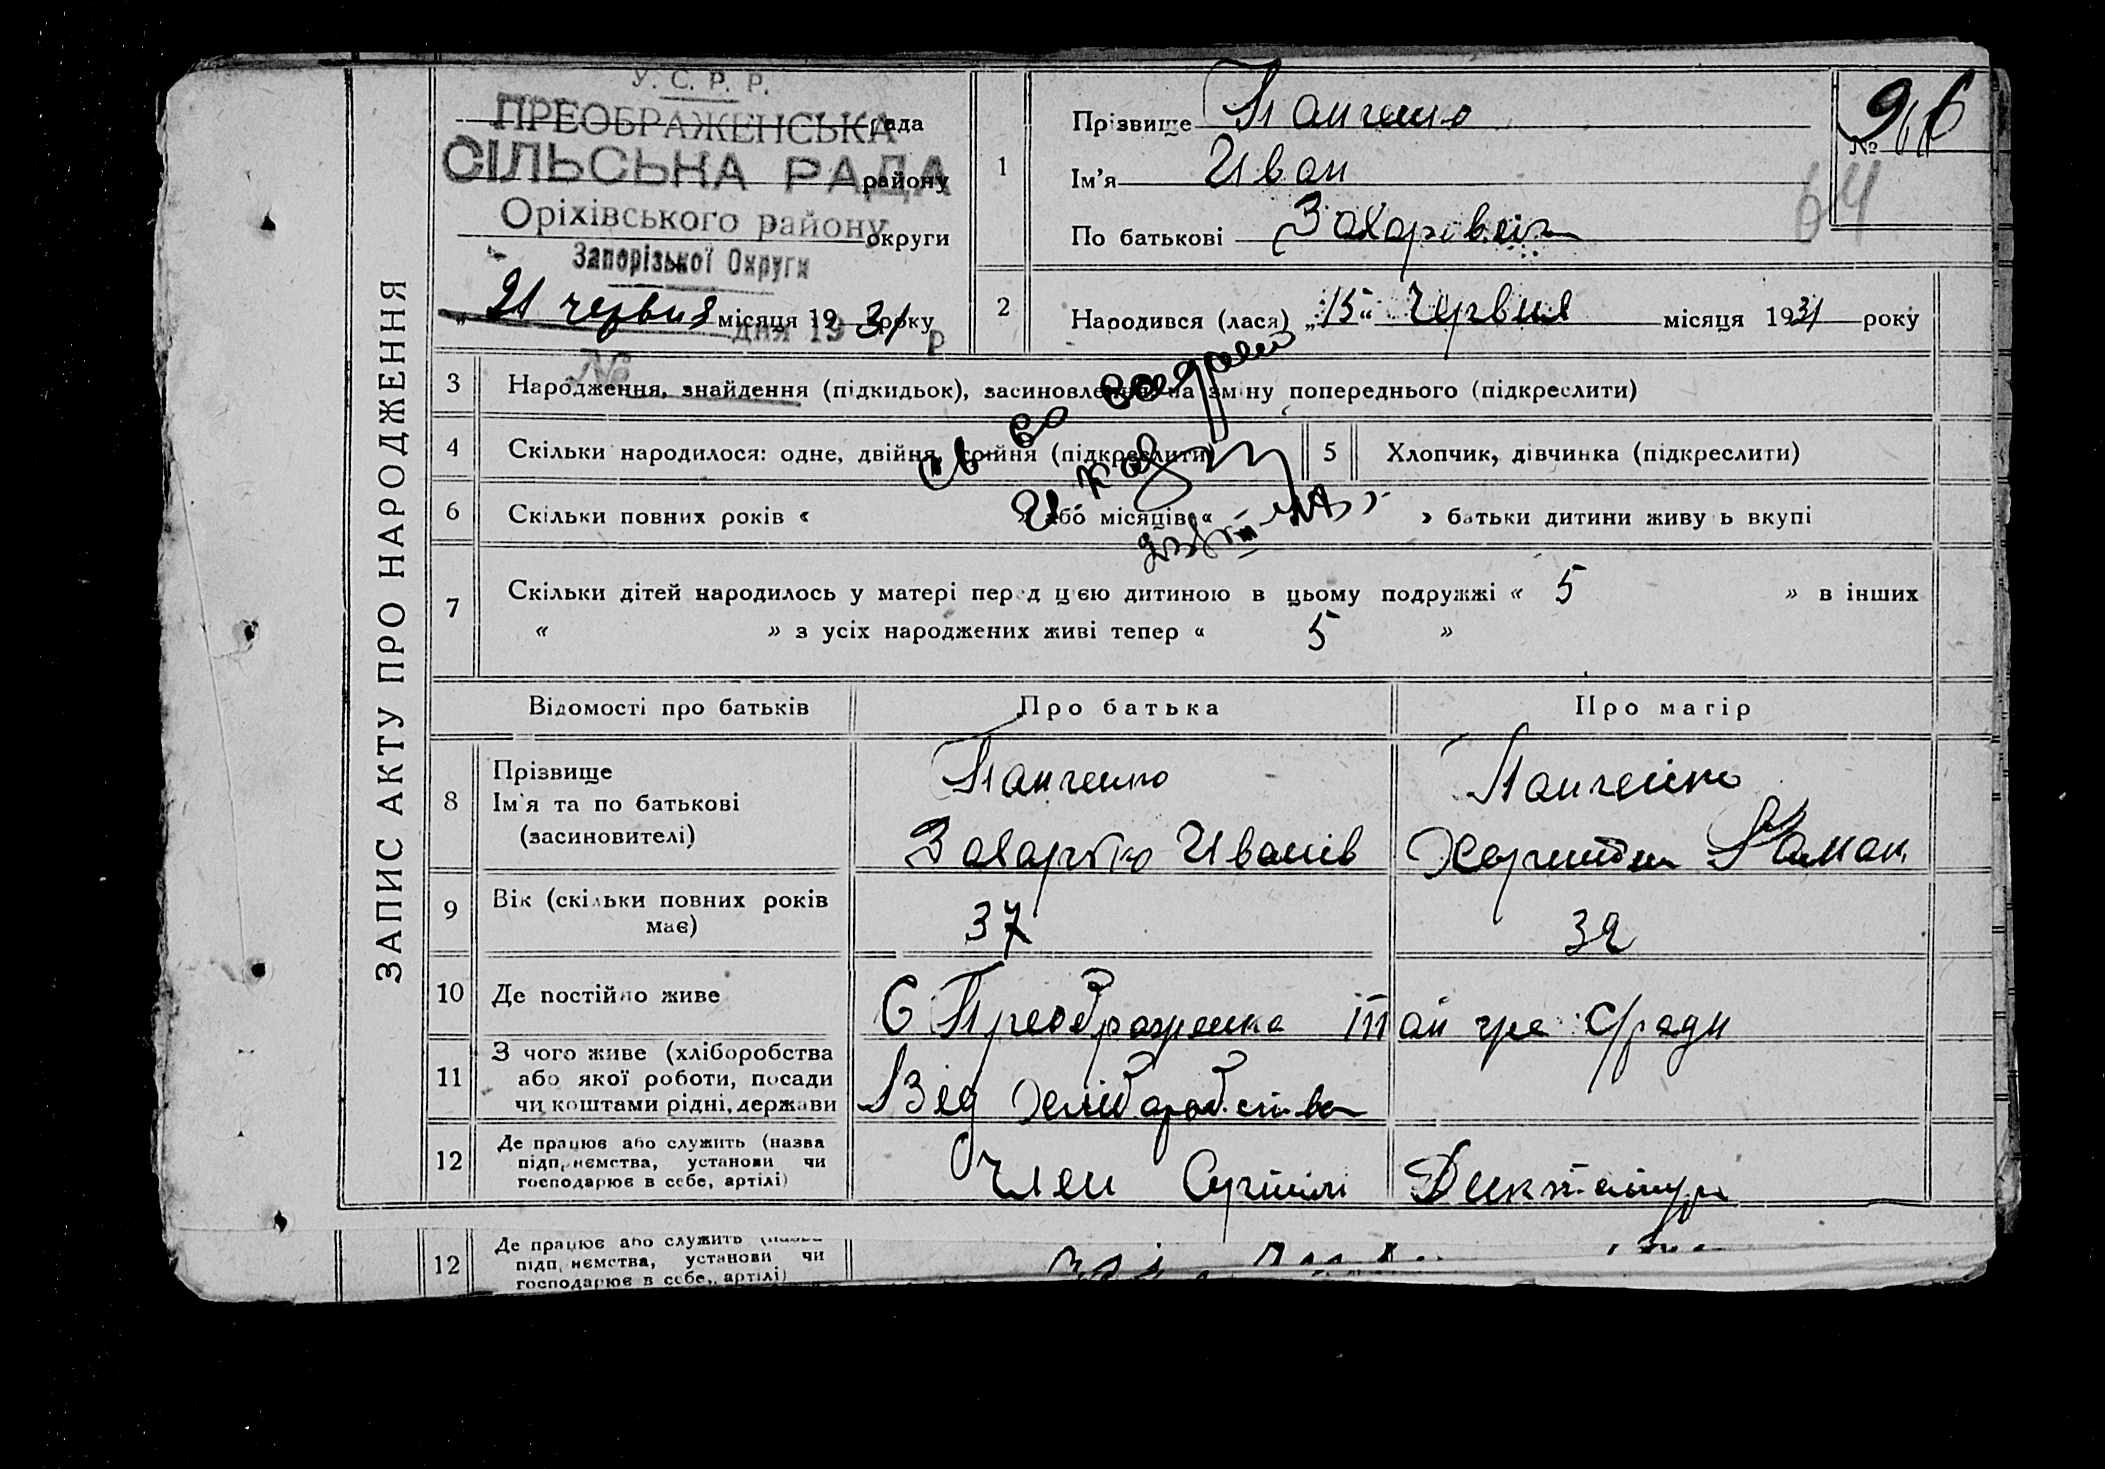 ЗАПИС АКТУ ПРО НАРОДЖЕННЯ
У. С. Р. Р.
ПРЕОБРАЖЕНСЬКА рада
СІЛЬСЬКА РАДА району
Оріхівського району округи
Запорізької Округи
„21 червня місяця 1931 року
дня 19 р
№
1
Прізвище Панченко
Ім'я Иван
По батькові Захарович
№ 96
64
2
Народився (лася) „15“ Червня місяця 1931 року
3 Народження, знайдення (підкидьок), засиновлення на зміну попереднього (підкреслити)
4 Скільки народилося: одне, двійня, трійня (підкреслити)
5 Хлопчик, дівчинка (підкреслити)
6 Скільки повних років « » або місяців « » батьки дитини живуть вкупі
7 Скільки дітей народилось у матері перед цією дитиною в цьому подружжі « 5 » в інших
« » з усіх народжених живі тепер « 5 »
Відомості про батьків Про батька Про матір
8 Прізвище
Ім'я та по батькові
(засиновителі)
Панченко
Захарко Иванів
Панченко
9 Вік (скільки повних років
має)
37 32
10 Де постійно живе С Преображенка
11 З чого живе (хліборобства
або якої роботи, посади
чи коштами рідні, держави
Від хліборобства
12 Де працює або служить (назва
підприємства, установи чи
господарює в себе, артілі)
Член
12 Де працює або служить (назва
підприємства, установи чи
господарює в себе, артілі)